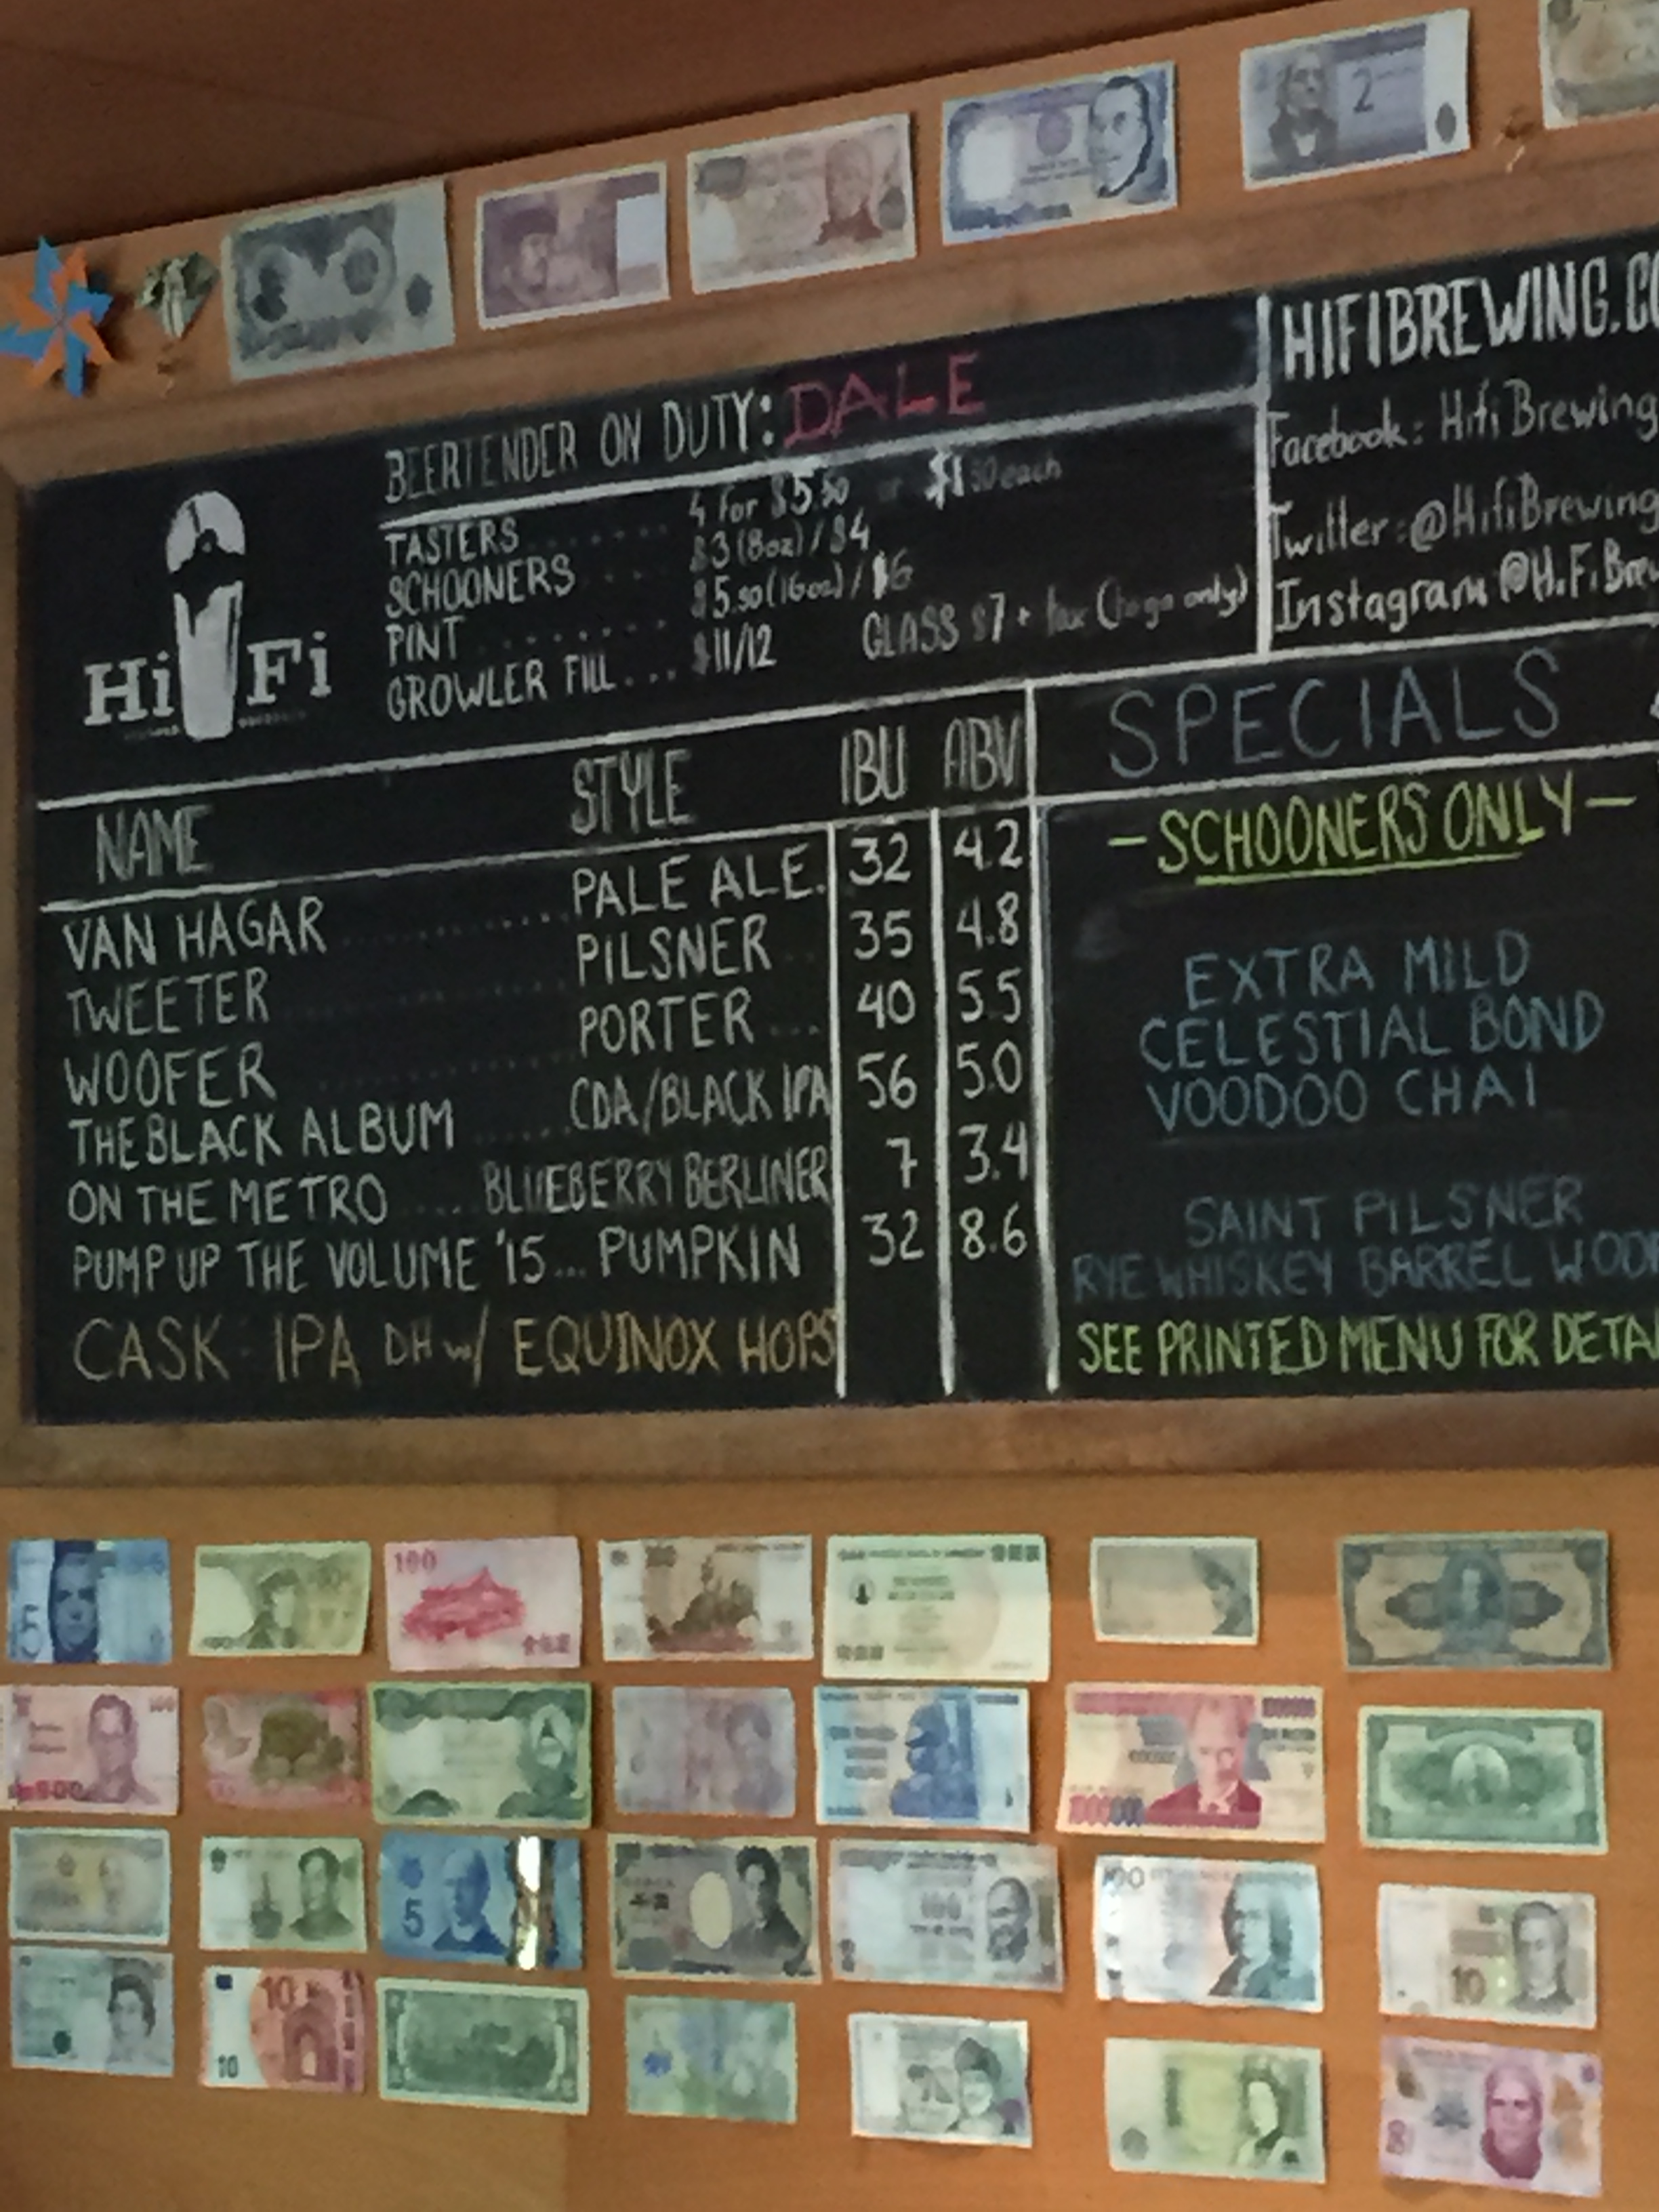 BEERTENDER ON DUTY: DALE
TASTERS ....... 4 for $5.50 or $1.50 each
SCHOONERS .... $3 (8oz) / $4
PINT ........ $5.50 (16oz) / $6
GROWLER FILL ... $11/12 GLASS $7 + tax (to go only)
Hi Fi
HIFIBREWING.CO
Facebook: HifiBrewing
Twitter: @HifiBrewing
Instagram @H.Fi.Brew
NAME STYLE IBU ABV
VAN HAGAR ............ PALE ALE. 32 4.2
TWEETER ............ PILSNER ... 35 4.8
WOOFER ............ PORTER ... 40 5.5
THE BLACK ALBUM ...... CDA/BLACK IPA 56 5.0
ON THE METRO ..... BLUEBERRY BERLINER 7 3.4
PUMP UP THE VOLUME '15... PUMPKIN 32 8.6
CASK - IPA DH w/ EQUINOX HOPS
SPECIALS
- SCHOONERS ONLY -
EXTRA MILD
CELESTIAL BOND
VOODOO CHAI
SAINT PILSNER
RYE WHISKEY BARREL WOOF
SEE PRINTED MENU FOR DETAI
2
5
100
100
5
100
10
10
10